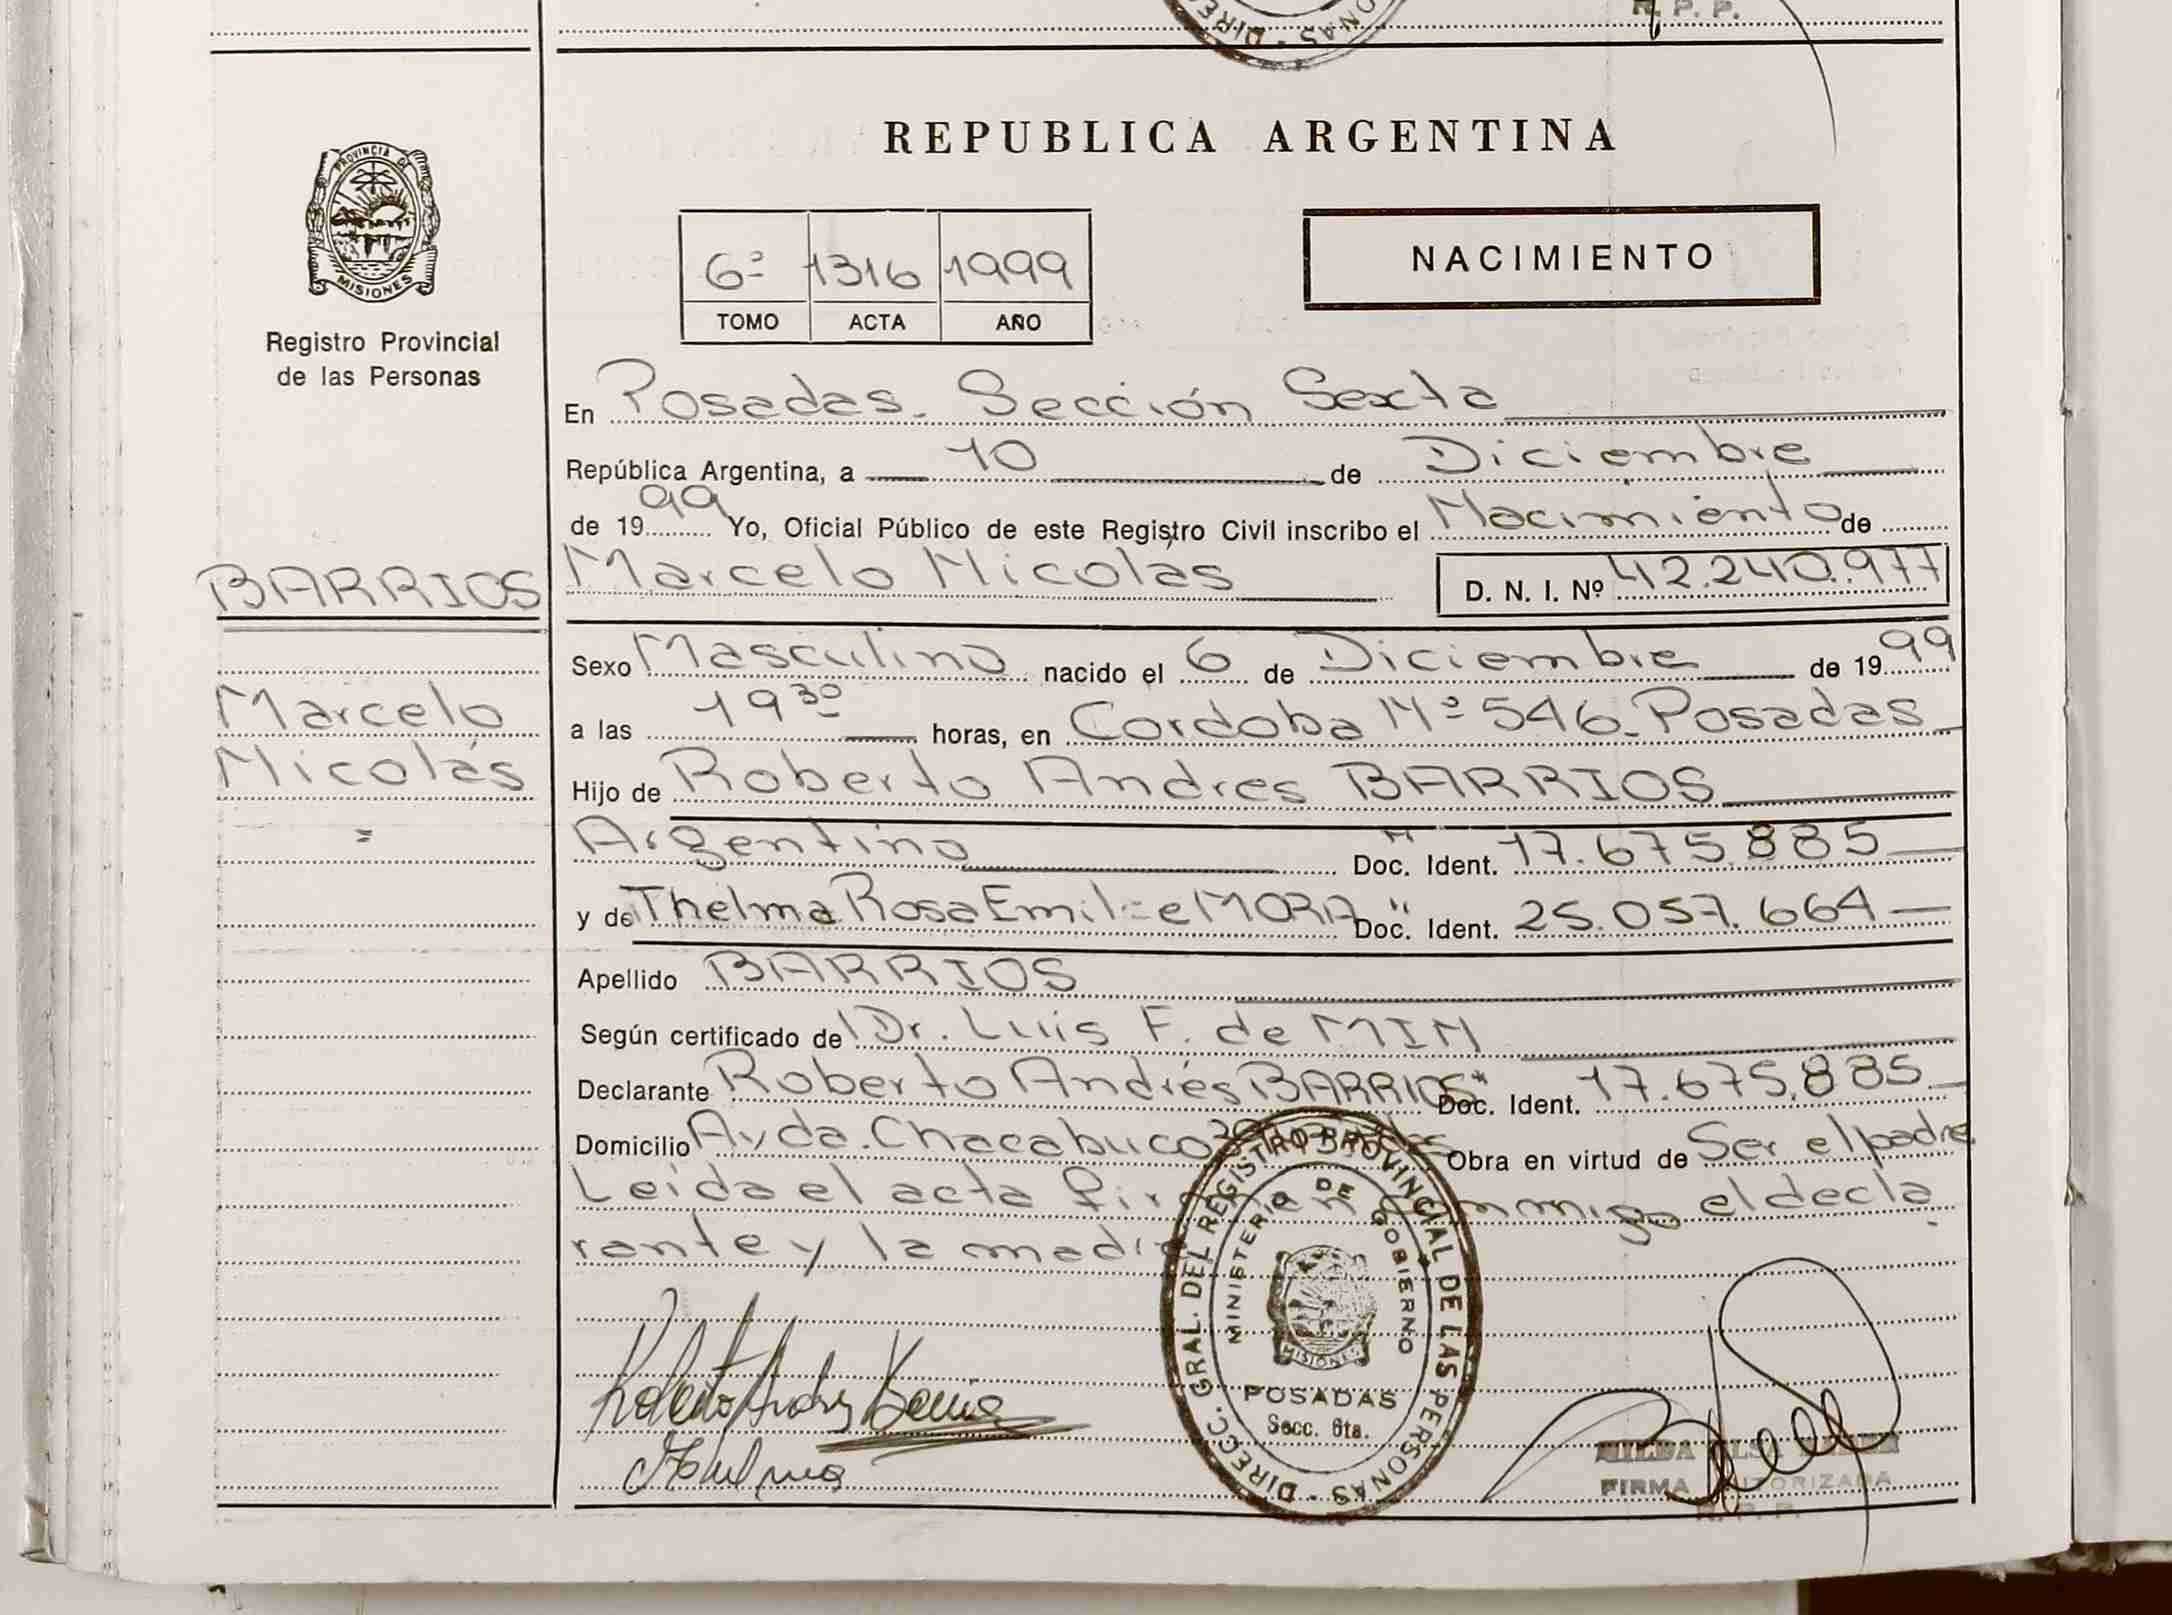 R. P. P.
REPUBLICA ARGENTINA
PROVINCIA DE
MISIONES
Registro Provincial
de las Personas
6ª 1316 1999
TOMO ACTA AÑO
NACIMIENTO
En Posadas. Sección Sexta
República Argentina, a 10 de Diciembre
de 1999 Yo, Oficial Público de este Registro Civil inscribo el Nacimiento de
BARRIOS
Marcelo Nicolás D. N. I. Nº 42.240.977
Sexo Masculino nacido el 6 de Diciembre de 1999
Marcelo
Nicolás
a las 19 30 horas, en Cordoba Nº 546. Posadas
Hijo de Roberto Andres BARRIOS
Argentino Doc. Ident. 17.675.885
y de Thelma Rosa Emilce MORA Doc. Ident. 25.057.664
Apellido BARRIOS
Según certificado de Dr. Luis F. de MIN
Declarante Roberto Andrés BARRIOS Doc. Ident. 17.675.885
Domicilio Avda. Chacabuco Obra en virtud de Ser el padre
Leida el acta firman conmigo el decla
rante y la madre
DIRECC. GRAL. DEL REGISTRO PROVINCIAL DE LAS PERSONAS
MINISTERIO DE GOBIERNO
MISIONES
POSADAS
Secc. 6ta.
Roberto Andres Barrios
Thelma
FIRMA AUTORIZADA
R. P. P.